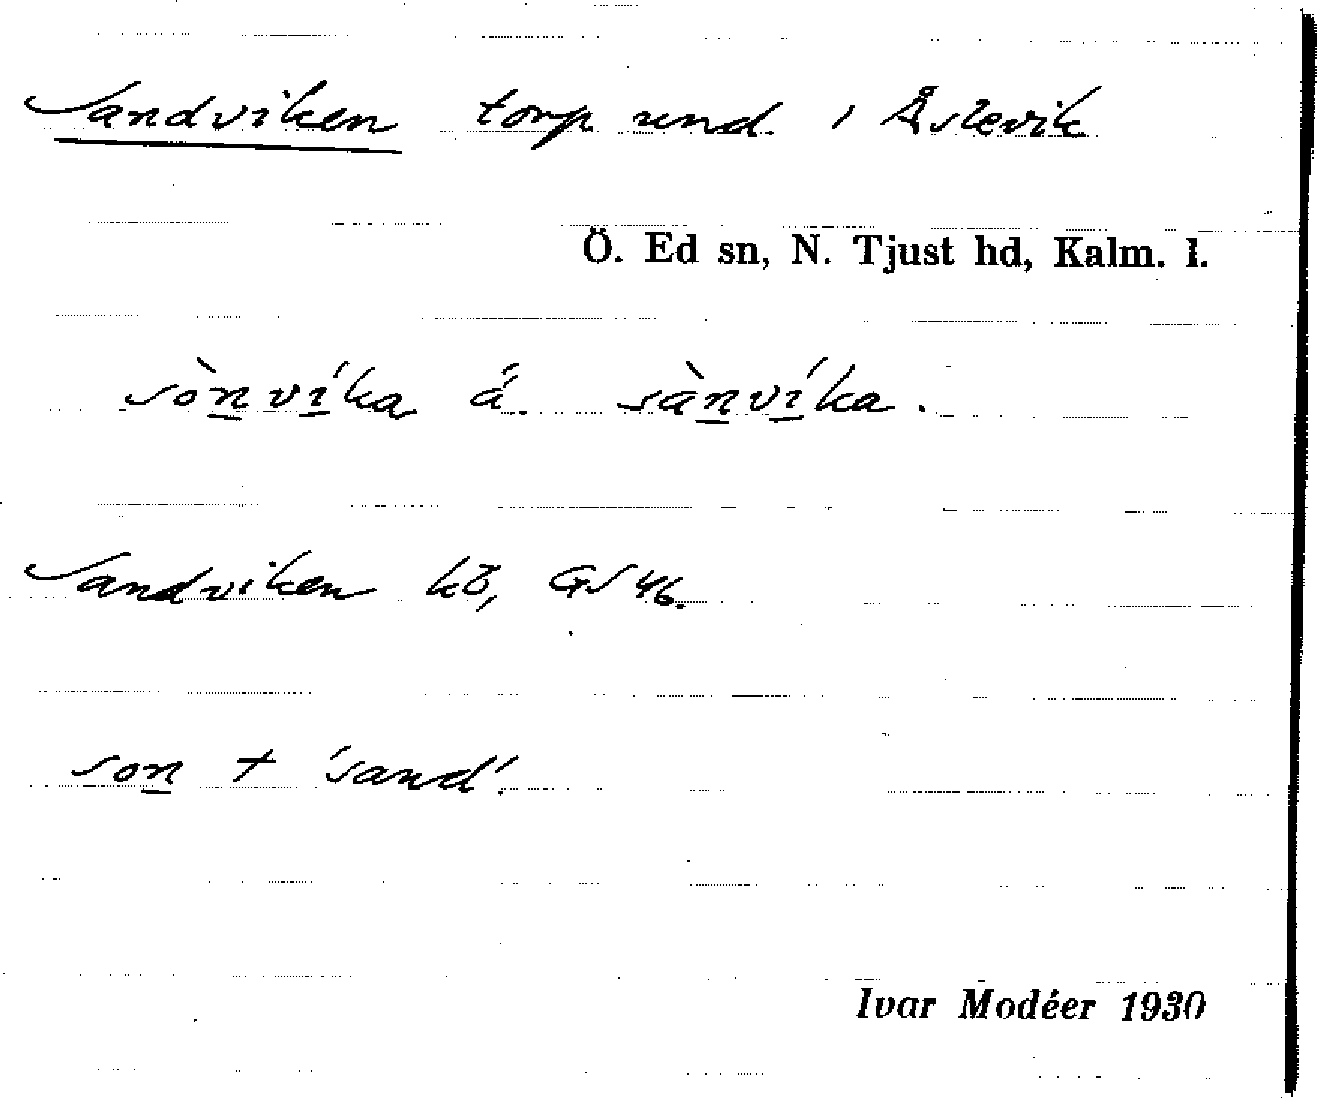 Sandviken torp und. i Åslevik
Ö. Ed sn, N. Tjust hd, Kalm. l.
sònvíka á. sànvíka.
Sandviken kb, GS 46.
son + 'sand'.
Ivar Modéer 1930